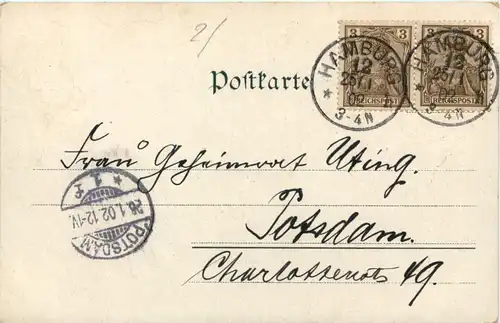 2/
3 3
HAMBURG HAMBURG
12 12
25/1 25/1
02 02
REICHSPOST REICHSPOST
3-4 N 3-4 N
Postkarte
Frau Geheimrat Uting.
* 1 f.
26.1.02.12-1V.
POTSDAM
Potsdam.
Charlottenstr 49.